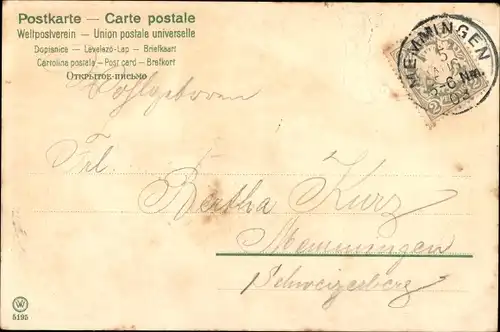 Postkarte — Carte postale
Weltpostverein — Union postale universelle
Dopisnice — Levelező-Lap — Briefkaart
Cartolina postale — Post card — Brefkort
Открытое письмо
MEMMINGEN
5-6 Nm.
Wohlgeboren
Frl.
Bertha Kurz
Memmingen
Schweizerberg
W
5195